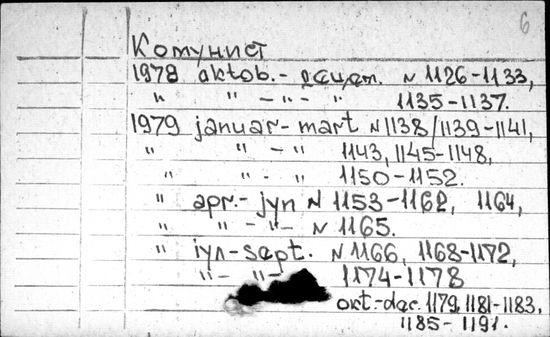 6
Комунист
1978 aktob.- декет. N 1126-1133,
" " - " - " 1135-1137.
1979 januar- mart N 1138/1139-1141,
" " - " 1143, 1145-1148,
" " - " 1150-1152.
" apr.- jyn N 1153-1162, 1164,
" " - " - N 1165.
" iyл-sept. N 1166, 1168-1172,
" - " - 1174-1178
okt.-dec. 1179, 1181-1183,
1185-1191.